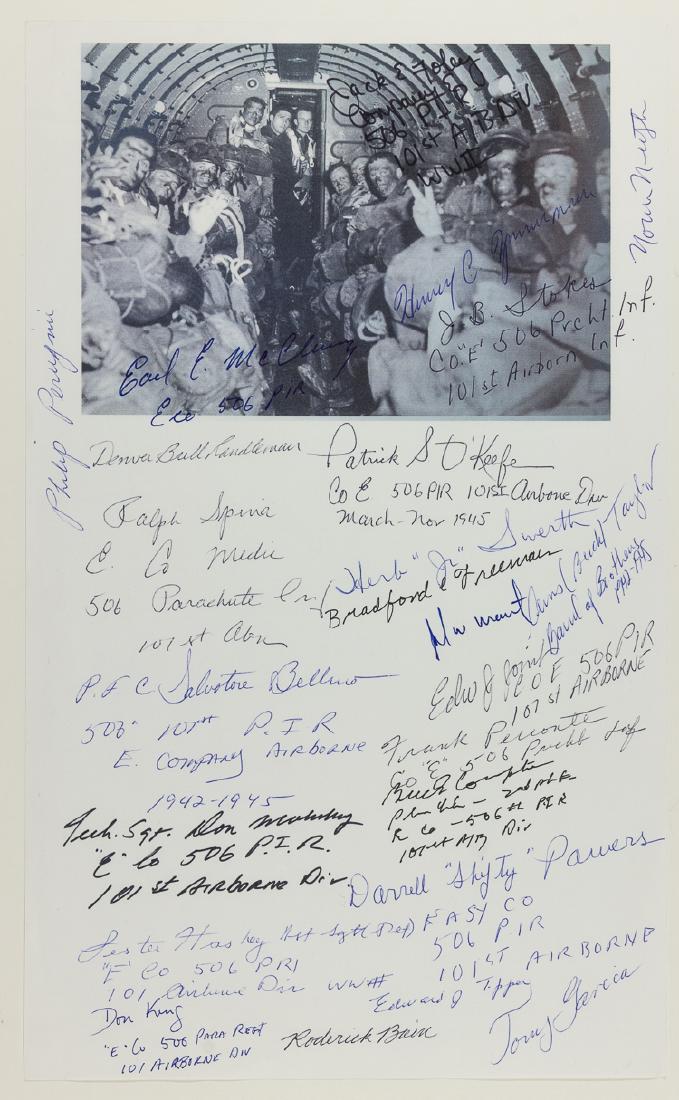 Jack E Foley
Company E
506 PIR
101st A/B Div
WWII
Norm Neitzke
Henry C Zimmerman
J. B. Stokes
Co "E" 506 Prcht. Inf.
101st Airborn Inf.
Earl E. McClung
E co 506 PIR
Philip Perugini
Denver Bull Randleman
Patrick S O'Keefe
Co E 506 PIR 101st Airbone Div
March-Nov 1945
Ralph Spina
E. Co Medic
506 Parachute Inf
101st Abn
Herb "Jr" Suerth
Bradford C Freeman
Amos (Buck) Taylor
Band of Brothers
1942-1945
P.F.C Salvatore Bellino
506" 101st P.I.R
E. Company Airborne
1942-1945
Edw J Joint
CO E 506 PIR
101st AIRBORNE
Frank Perconte
Co "E" 506 Prcht Inf
Buck Compton
E Co - 506th PIR
101st A/B Div
Tech. Sgt. Don Malarkey
"E" Co 506 P.I.R.
101st AIRBORNE Div
Darrell "Shifty" Powers
EASY CO
506 PIR
101ST AIRBORNE
Lester Hashey
"E" Co 506 PRI
101 Airborne Div WWII
Don King
"E" Co 506 PARA REGT
101 AIRBORNE DIV
Edward J Tipper
Roderick Bain
Tony Garcia